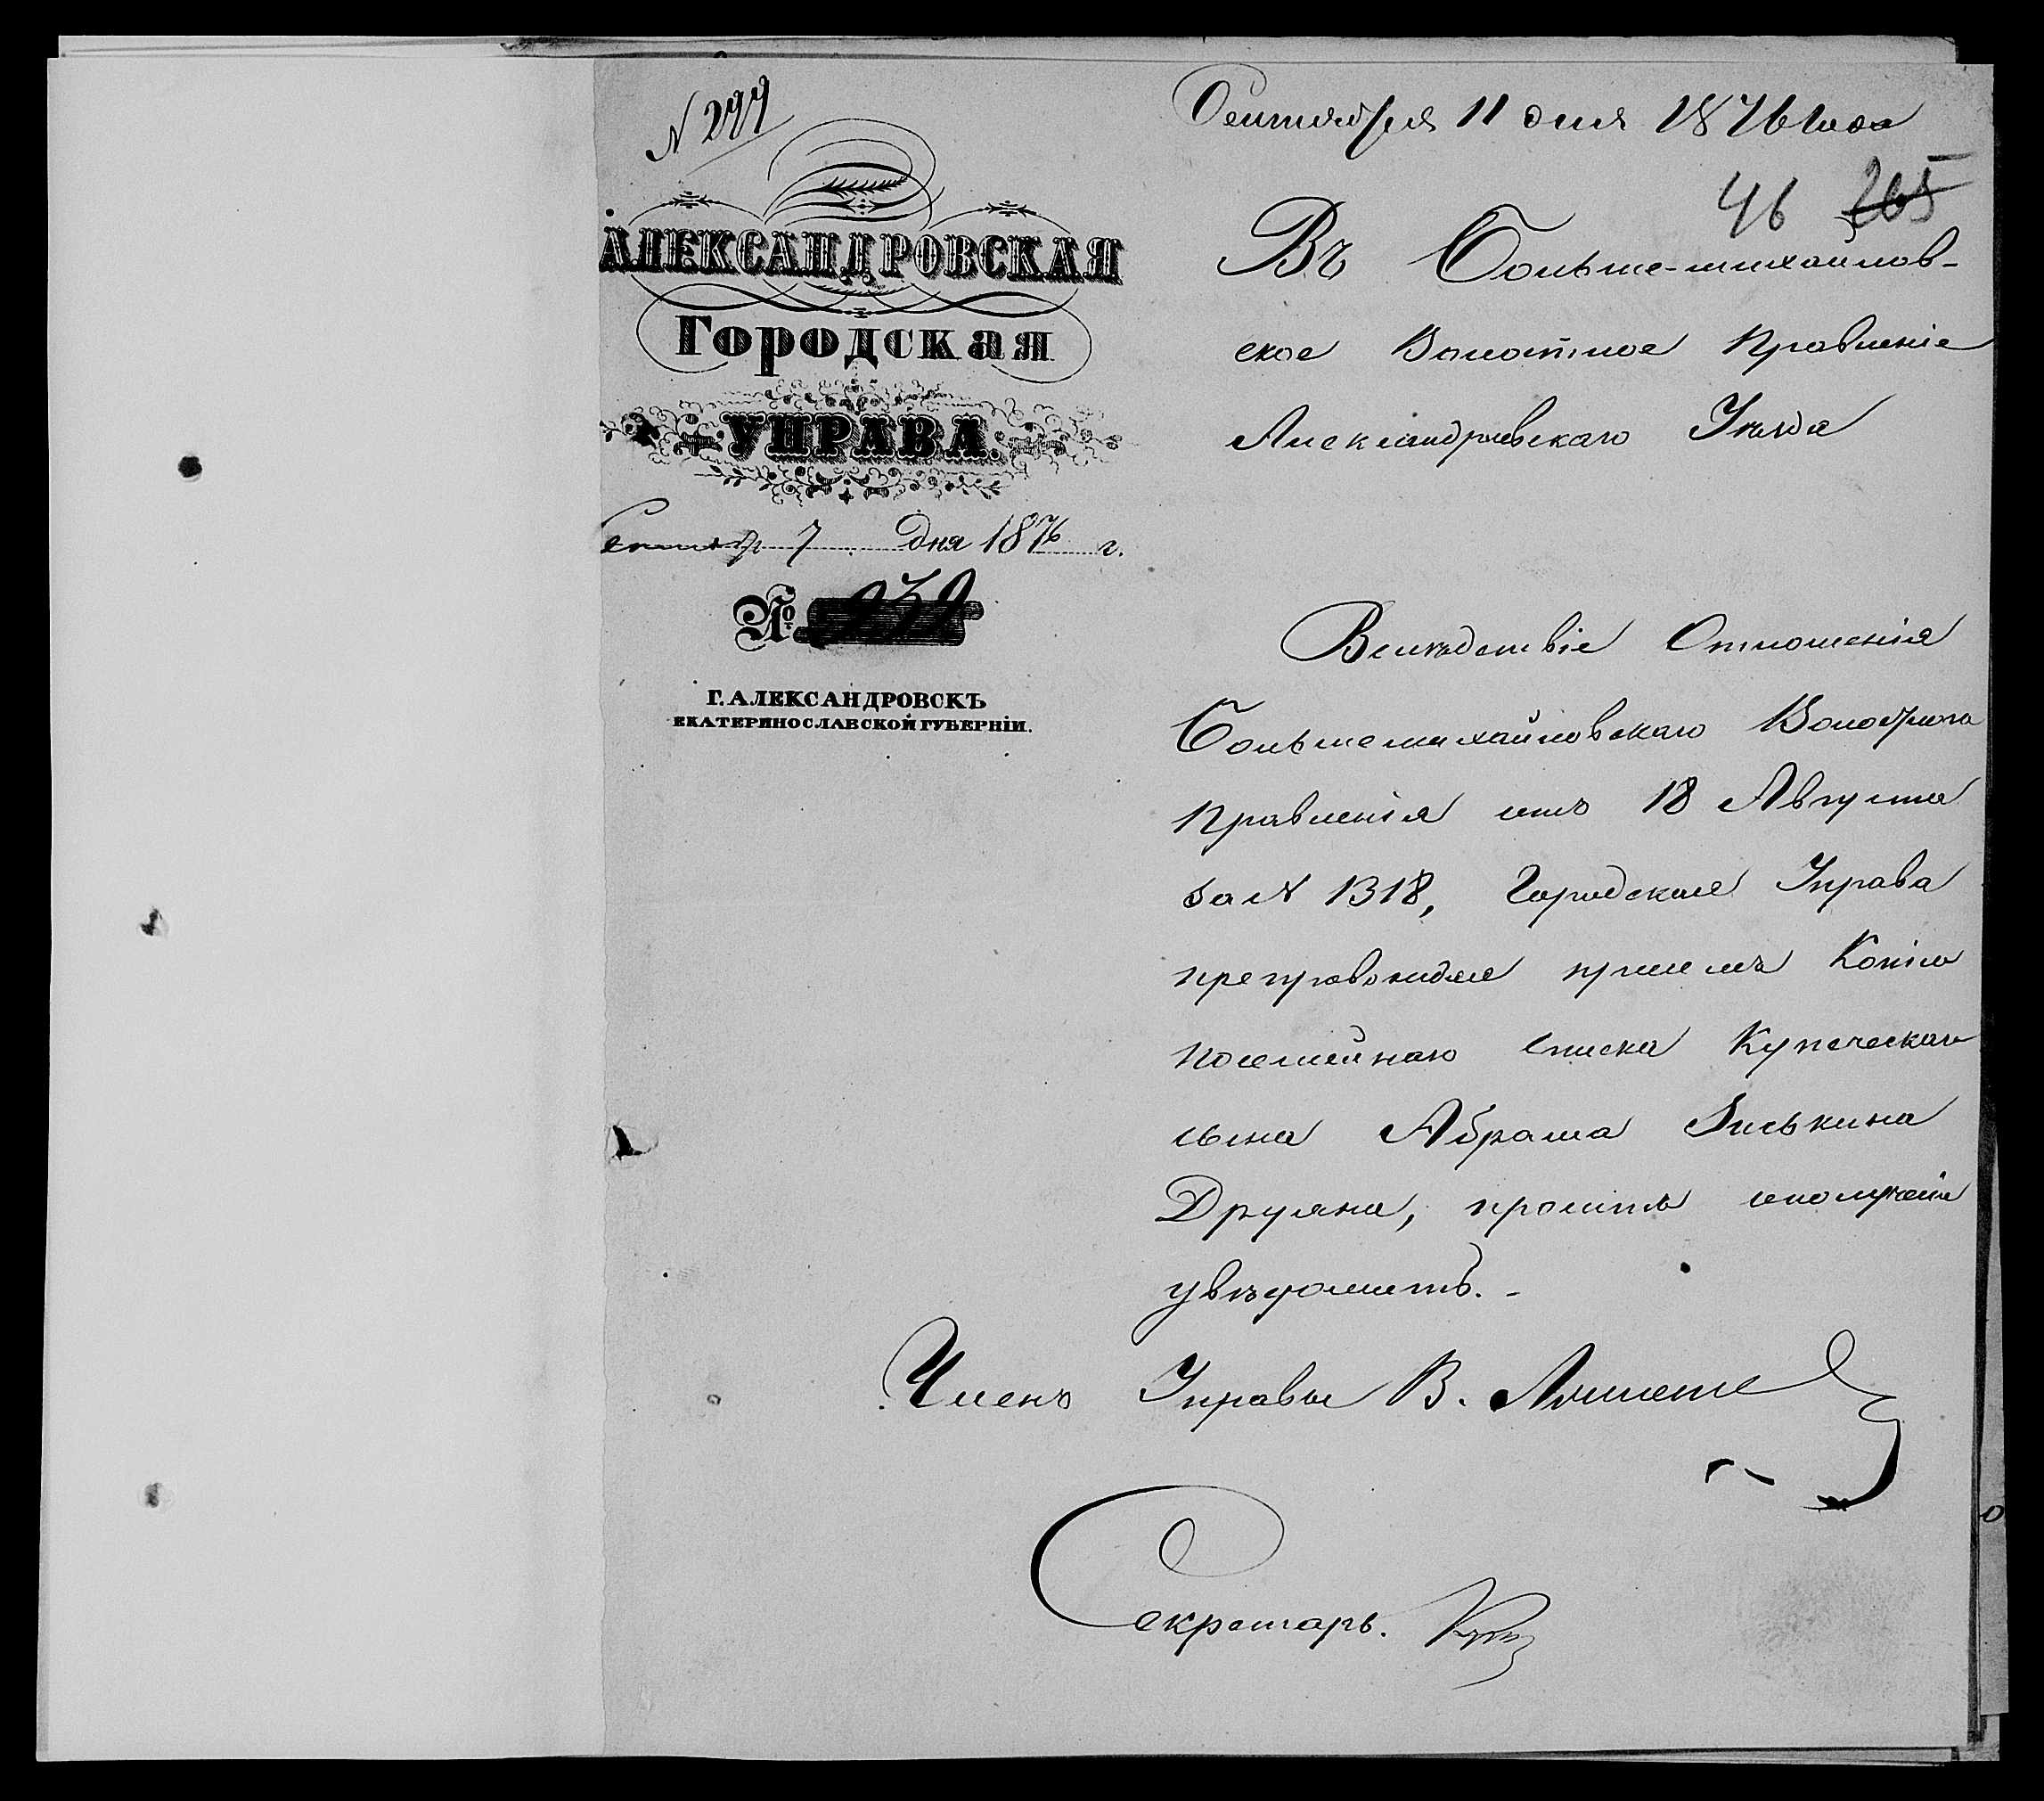 N 299
Сентября 11 дня 1876 года
46 265
АЛЕКСАНДРОВСКАЯ
ГОРОДСКАЯ
УПРАВА.
Сентяб 7 Дня 1876 г.
№ 939
Г. АЛЕКСАНДРОВСКЪ
ЕКАТЕРИНОСЛАВСКОЙ ГУБЕРНІИ.
Въ Больше-михайлов-
ское Волостное Правленіе
Александровскаго Уѣзда
Вслѣдствіе Отношенія
Большемихайловскаго Волостнаго
Правленія отъ 18 Августа
за N 1318, Городская Управа
препровождая присемъ Копію
посемейнаго списка Купеческаго
сына Абрама Зиськина
Друяна, проситъ ополученіи
увѣдомить. -
Членъ Управы В.
Секретарь.